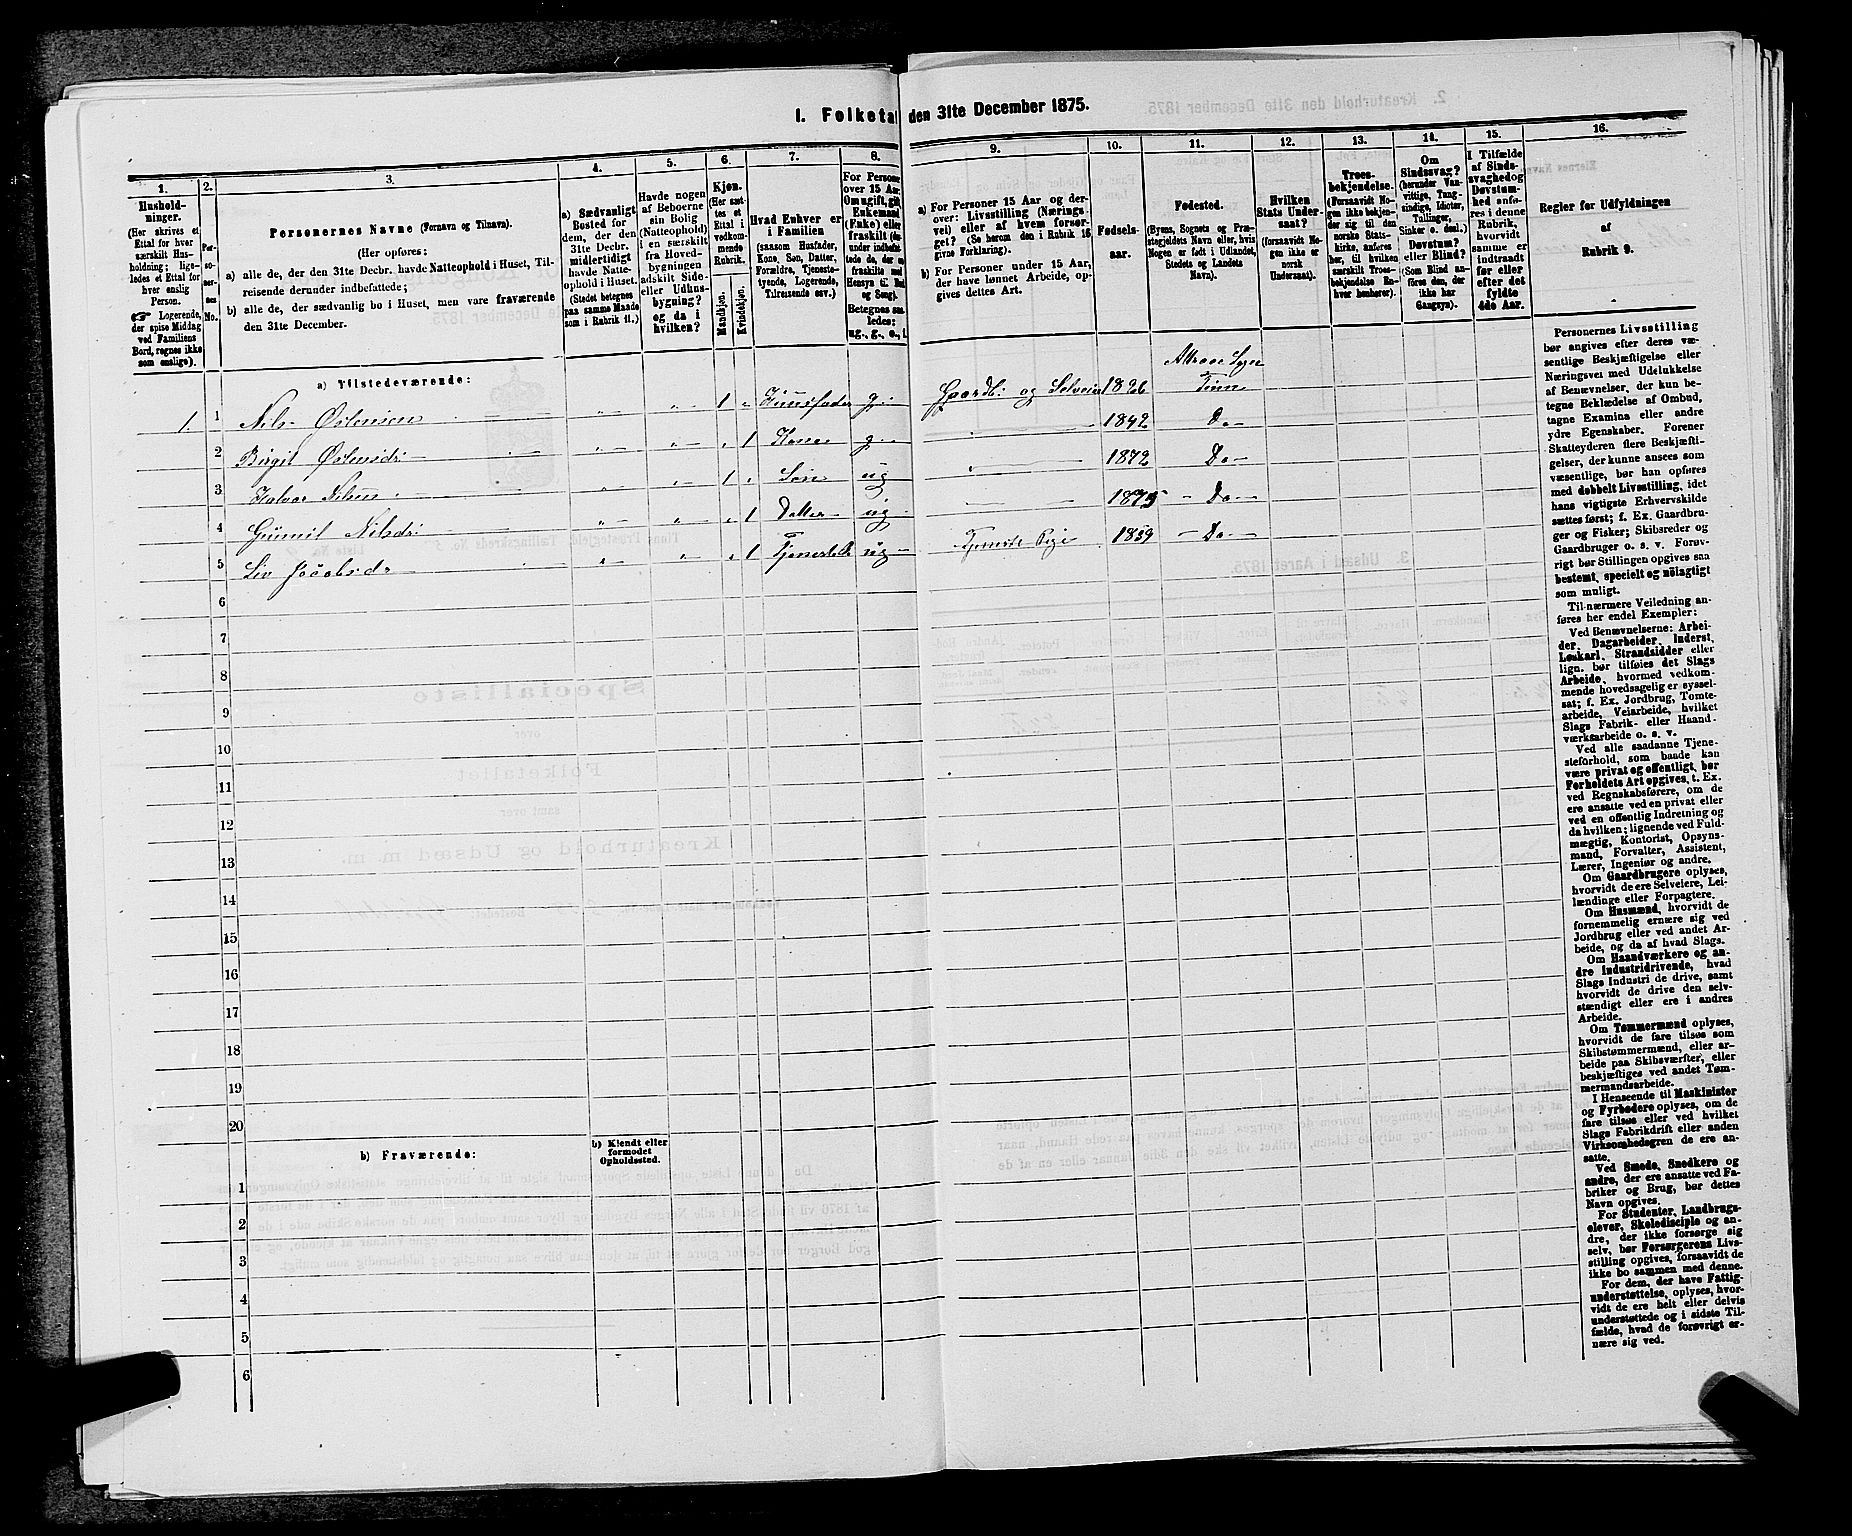 I. Folketa den 31te December 1875.
1.
Husholdninger.
(Her skrives et
Ettal for hver
særskilt Husholdning; ligeledes et Ettal for
hver enslig
Person.
☞ Logerende,
der spise Middag
ved Familiens
Bord, regnes ikke
som enslige).
2.
Personernes
No.
3.
Personernes Navne (Fornavn og Tilnavn).
(Her opføres:
a) alle de, der den 31te Decbr. havde Natteophold i Huset, Tilreisende derunder indbefattede;
b) alle de, der sædvanlig bo i Huset, men vare fraværende
den 31te December.
4.
a) Sædvanligt
Bosted for
dem, der den
31te Decbr.
midlertidigt
havde Natteophold i Huset.
(Stedet betegnes
paa samme Maade
som i Rubrik 11.)
5.
Havde nogen
af Beboerne
sin Bolig
(Natteophold)
i en særskilt
fra Hovedbygningen
adskilt Side-
eller Udhusbygning?
og da i
hvilken?
6.
Kjøn.
(Her sættes et
Ettal i
vedkommende
Rubrik.
Mandkjøn.
Kvindekjøn.
7.
Hvad Enhver er
i Familien
(saasom Husfader,
Kone, Søn, Datter,
Forældre, Tjenestetyende, Logerende,
Tilreisende osv.)
8.
For Personer
over 15 Aar:
Om ugift, gift,
Enkemand
(Enke) eller
fraskilt
Betegnes saaledes:
ug., g., e., f.
9.
a) For Personer 15 Aar og derover: Livsstilling (Næringsvei) eller af hvem forsørget? (Se herom den i Rubrik 16
givne Forklaring).
b) For Personer under 15 Aar,
der have lønnet Arbeide, opgives dettes Art.
10.
Fødselsaar.
11.
Fødested.
(Byens, Sognets og Præstegjeldets Navn eller, hvis
Nogen er født i Udlandet,
Stedets og Landets
Navn).
12.
Hvilken
Stats Undersaat?
(forsaavidt Nogen ikke er
norsk
Undersaat).
13.
Troesbekjendelse.
(Forsaavidt Nogen ikke bekjender sig til den
norske Statskirke, anføres
her, til hvilken
særskilt Troesbekjendelse Enhver henhører).
14.
Om
Sindssvag?
(herunder Vanvittige, Tungsindige, Idioter,
Tullinger,
Sinker o. desl.)
Døvstum?
eller Blind?
(Som Blind anføres den, der
ikke har
Gangsyn).
15.
I Tilfælde
af Sindssvaghed og
Døvstumhed anføres i denne
Rubrik,
hvorvidt
samme er
indtraadt
før eller
efter det
fyldte
4de Aar.
16.
Regler for Udfyldningen
af
Rubrik 9.
a) Tilstedeværende:
1. 1 Nils Østensen 1 Huusfader g Gaardb: og Selveier 1826 Attraae Sogn Tinn
2 Birgit Østensdr 1 Kone g 1842 Do
3 Halvor Nilsen 1 Søn ug 1872 Do
4 Gunnil Nilsdr 1 Datter ug 1875 Do
5 Liv Jacobsdr 1 Tjenestetÿ ug Tjeneste Pige 1859 Do
6
7
8
9
10
11
12
13
14
15
16
17
18
19
20
b) Fraværende:
b) Kjendt eller
formodet
Opholdssted.
1
2
3
4
5
6
Personernes Livsstilling
bør angives efter deres væsentlige Beskjæftigelse eller
Næringsvei med Udelukkelse
af Benævnelser, der kun betegne Beklædelse af Ombud,
tagne Examina eller andre
ydre Egenskaber. Forener
Skatteyderen flere Beskjæftigelser, der kunne ansees som
væsentlige, bør han opføres
med dobbelt Livsstilling, idet
hans vigtigste Erhvervskilde
sættes først; f. Ex. Gaardbruger og Fisker; Skibsreder og
Gaardbruger o. s. v. Forøvrigt bør Stillingen opgives saa
bestemt, specielt og nøiagtigt
som muligt.
Til nærmere Veiledning anføres her endel Exempler:
Ved Benævnelserne: Arbeider, Dagarbeider, Inderst,
Løskarl, Strandsidder eller
lign. bør tilføies det Slags
Arbeide, hvormed vedkommende hovedsagelig er sysselsat; f. Ex. Jordbrug, Tomtearbeide, Veiarbeide, hvilket
Slags Fabrik- eller Haandværksarbeide o. s. v.
Ved alle saadanne Tjenesteforhold, som baade kan
være privat og offentligt, bør
Forholdets Art opgives, t. Ex.
ved Regnskabsførere, om de
ere ansatte ved en privat eller
ved en offentlig Indretning og
da hvilken; lignende ved Fuldmægtig, Kontorist, Opsynsmand, Forvalter, Assistent,
Lærer, Ingeniør og andre.
Om Gaardbrugere oplyses,
hvorvidt de ere Selveiere, Leilændinge eller Forpagtere.
Om Husmænd, hvorvidt de
fornemmelig ernære sig ved
Jordbrug eller ved andet Arbeide, og da af hvad Slags.
Om Haandværkere og andre Industridrivende, hvad
Slags Industri de drive, samt
hvorvidt de drive den selvstændigt eller ere i andres
Arbeide.
Om Tømmermænd oplyses,
hvorvidt de fare tilsøs som
Skibstømmermænd, eller arbeide paa Skibsværfter, eller
beskjæftiges ved andet Tømmermandsarbeide.
I Henseende til Maskinister
og Fyrbødere oplyses, om de
fare tilsøs eller ved hvilket
Slags Fabrikdrift eller anden
Virksomhedsgren de ere ansatte.
Ved Smede, Snedkere og
andre, der ere ansatte ved Fabriker og Brug, bør dettes
Navn opgives.
For Studenter, Landbrugselever, Skoledisciple og andre, der ikke forsørge sig
selv, bør Forsørgerens Livsstilling opgives, forsaavidt de
ikke bo sammen med denne.
For dem, der have Fattigunderstøttelse, oplyses, hvorvidt de ere helt eller delvis
understøttede og i sidste Tilfælde, hvad de forøvrigt ernære sig ved.